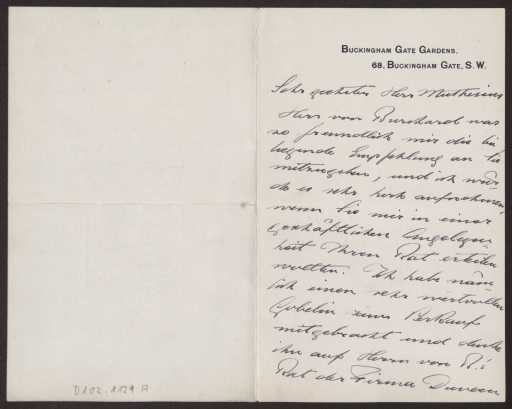 BUCKINGHAM GATE GARDENS.
68, BUCKINGHAM GATE, S.W.
Sehr geehrter Herr Muthesius
Herr von Burchard war
so freundlich mir die bei
liegende Empfehlung an Sie
mitzugeben, und ich wür
de es sehr hoch aufnehmen,
wenn Sie mir in einer
geschäftlichen Angelegen
heit Ihren Rat erteilen
wollten. Ich habe näm
lich einen sehr wertvollen
Gobelin zum Verkauf
mitgebracht und
ihn auf Herrn von B.'s
Rat der Firma Duveen
D102-1129 A